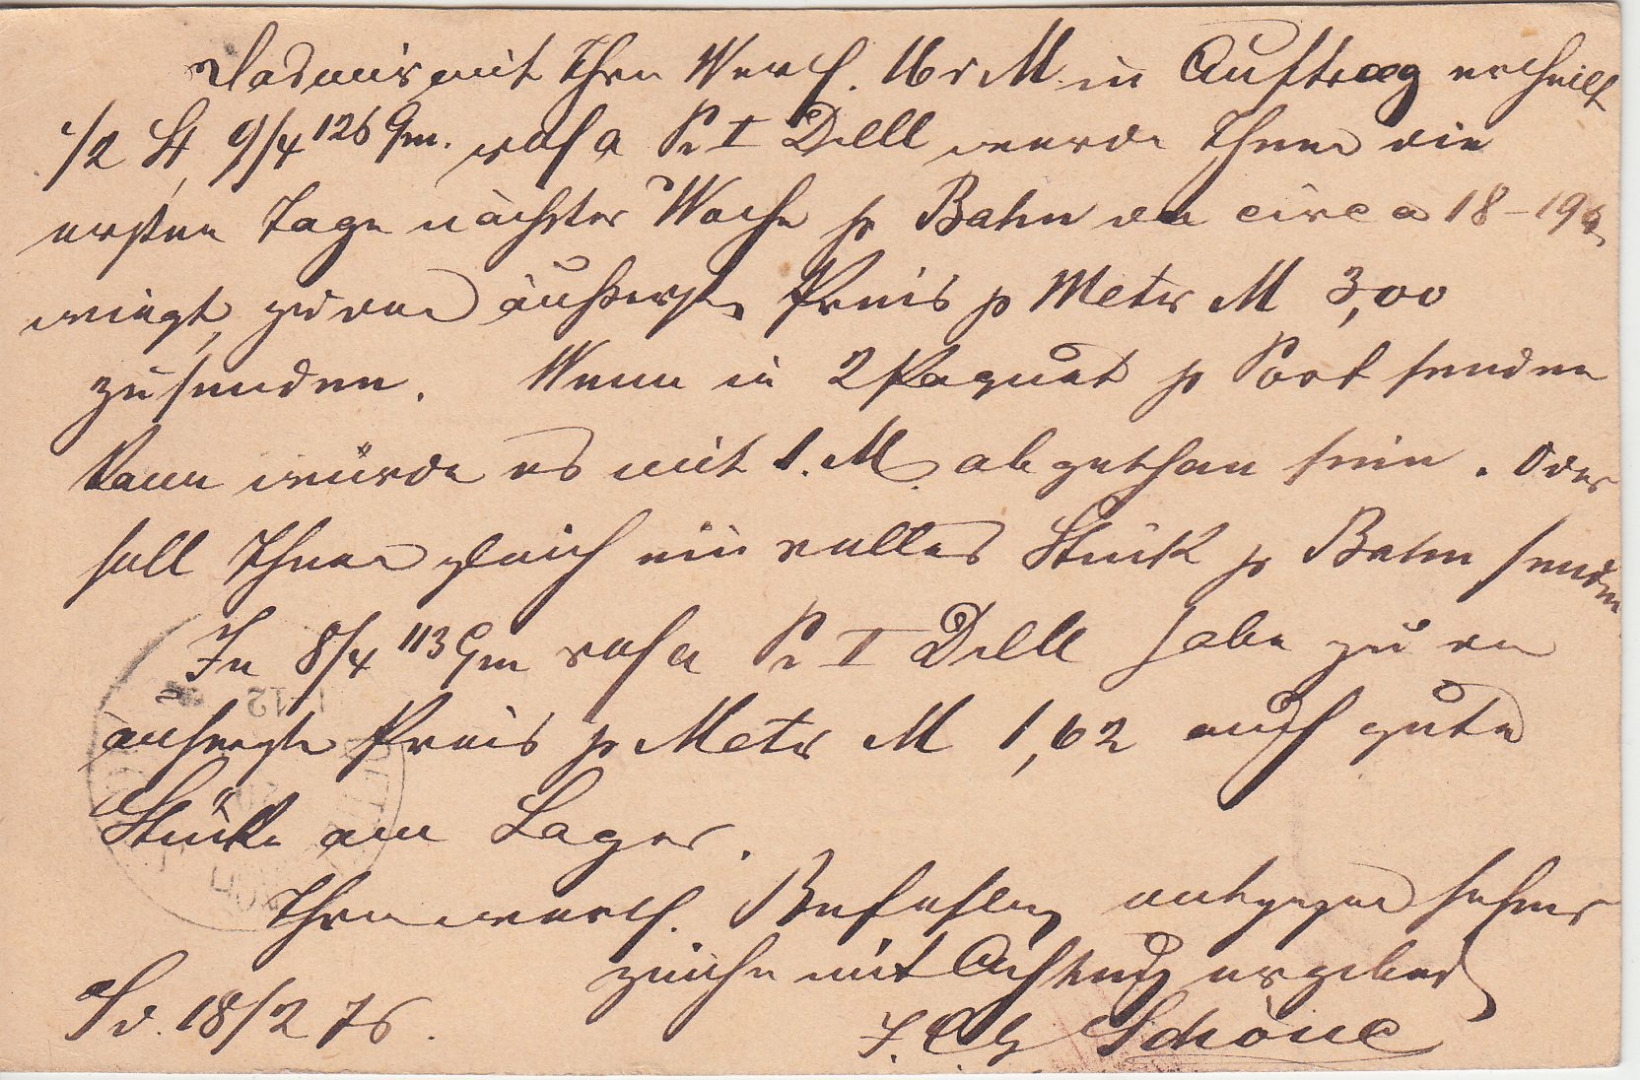 Das mir mit Ihrn Werth. 16 v M. in Auftrag ertheilt
1/2 St 9/4 126 Gm. rosa Pr I Dell werde Ihnen die
ersten Tage nächster Woche p Bahn da circa 18-19
wiegt, zu den äußersten Preis p Meter M 3,00
zusenden. Wenn in 2 Paquet p Post senden
kann würde es mit 1. M. abgethan sein. Oder
soll Ihnen gleich ein volles Stück p Bahn senden
In 8/4 113 Gm rosa Pr I Dell habe zu den
äußerste Preis p Meter M 1,62 auch gute
Stücke am Lager.
Ihren werth. Befehlen entgegen sehend
zeichne mit Achtung ergebenst
d. 18/2 76. Schöne